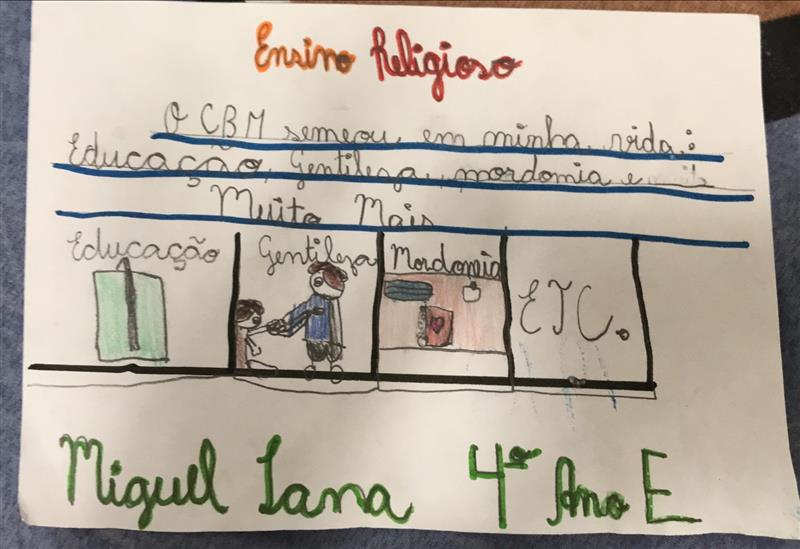 Ensino Religioso
O CBM semeou em minha vida:
Educação, Gentileza, mordomia e
Muito Mais
Educação Gentileza Mordomia
ETC.
Miguel Lana 4º Ano E